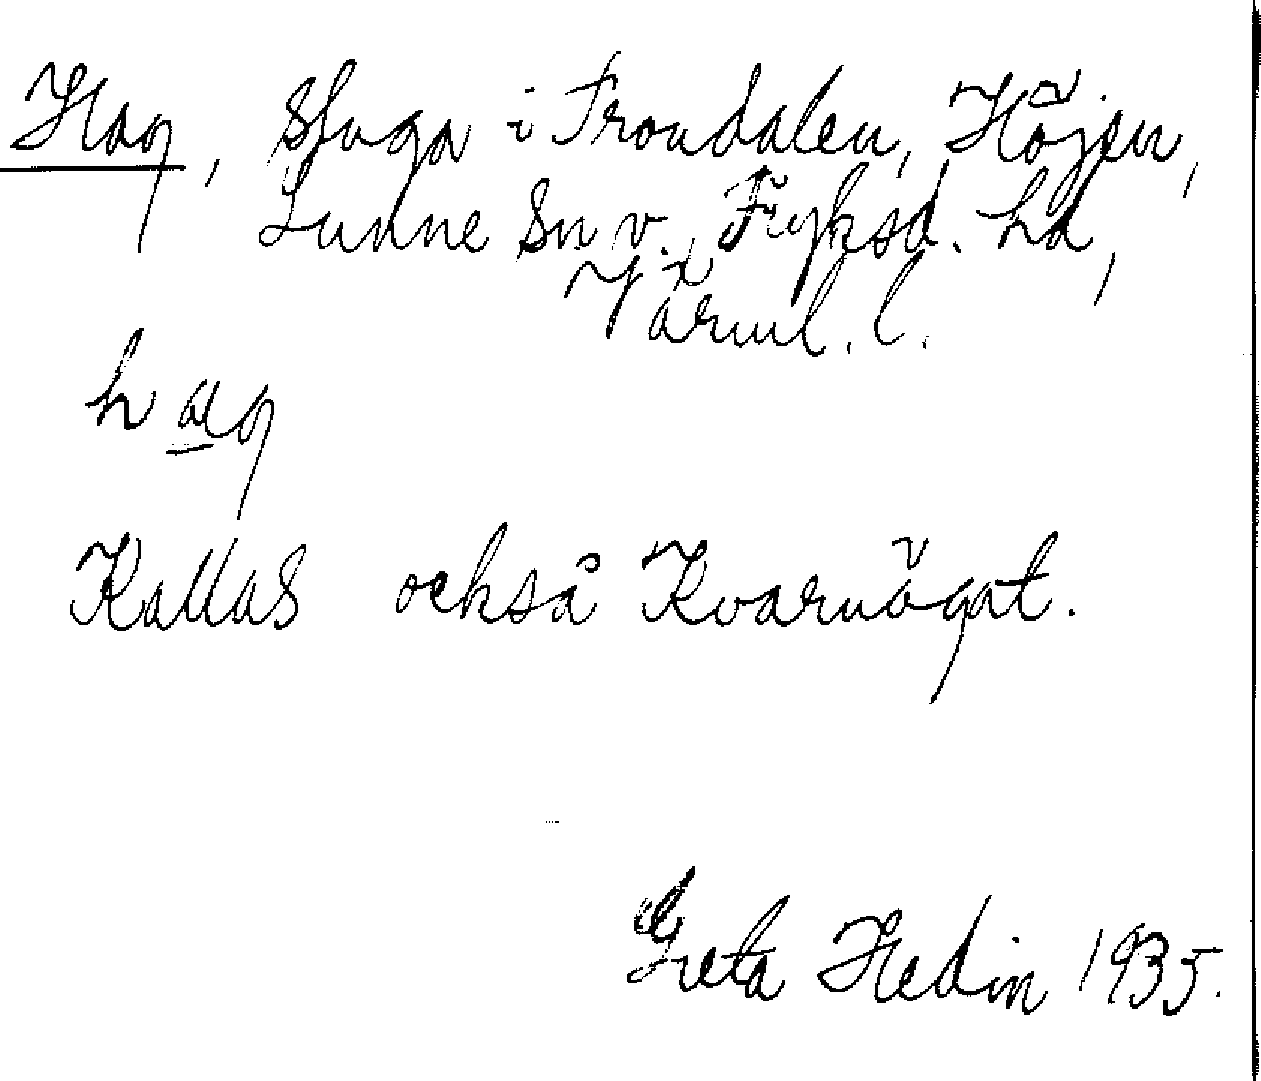 Hag, stuga i Trondalen, Höjen,
Sunne sn v. Fryksd. hd,
Värml. l.
hag
Kallas också Kvarnögat.
Greta Hedin 1935.